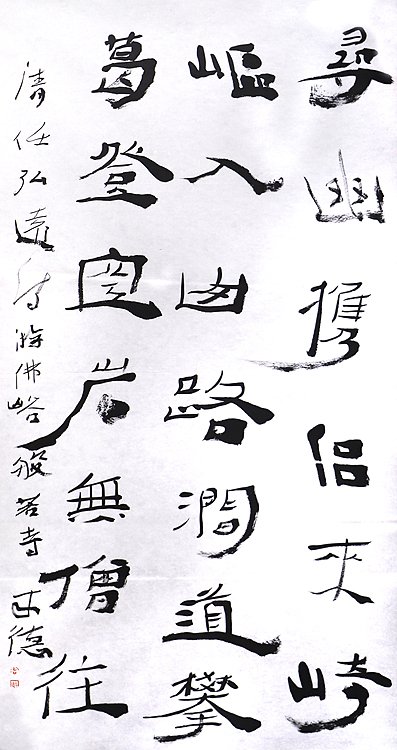 尋幽攜侶來崎
嶇入路澗道攀
葛登空岩無僧往
清任弘遠詩游佛峪般若寺 德